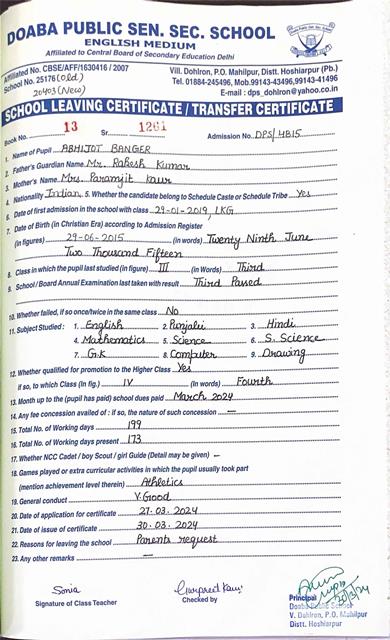 DOABA PUBLIC SEN. SEC. SCHOOL
ENGLISH MEDIUM
Affiliated to Central Board of Secondary Education Delhi
Affiliated No. CBSE/AFF/1630416 / 2007
School No. 25176 (Old)
20403 (New)
Vill. Dohlron, P.O. Mahilpur, Distt. Hoshiarpur (Pb.)
Tel. 01884-245496, Mob.99143-43496,99143-41496
E-mail : dps_dohlron@yahoo.co.in
SCHOOL LEAVING CERTIFICATE / TRANSFER CERTIFICATE
Book No. 13 Sr. 1261 Admission No. DPS/4815
1. Name of Pupil ABHIJOT BANGER
2. Father's Guardian Name Mr. Rakesh Kumar
3. Mother's Name Mrs. Paramjit Kaur
4. Nationality Indian 5. Whether the candidate belong to Schedule Caste or Schedule Tribe Yes
6. Date of first admission in the school with class 29-01-2019, LKG
7. Date of Birth (in Christian Era) according to Admission Register
(in figures) 29-06-2015 (in words) Twenty Ninth June
Two Thousand Fifteen
8. Class in which the pupil last studied (in figure) III (in Words) Third
9. School / Board Annual Examination last taken with result Third Passed
10. Whether failed, if so once/twice in the same class No
11. Subject Studied : 1. English 2. Punjabi 3. Hindi
4. Mathematics 5. Science 6. S. Science
7. G.K 8. Computer 9. Drawing
12. Whether qualified for promotion to the Higher Class Yes
if so, to which Class (in fig.) IV (in words) Fourth
13. Month up to the (pupil has paid) school dues paid March 2024
14. Any fee concession availed of : if so, the nature of such concession —
15. Total No. of Working days 199
16. Total No. of Working days present 173
17. Whether NCC Cadet / boy Scout / girl Guide (Detail may be given) –
18. Games played or extra curricular activities in which the pupil usually took part
(mention achievement level therein) Athletics
19. General conduct V.Good
20. Date of application for certificate 27.03.2024
21. Date of issue of certificate 30.03.2024
22. Reasons for leaving the school Parents request
23. Any other remarks —
Sonia
Signature of Class Teacher
Gurpreet Kaur
Checked by
Principal
Doaba Public School
V. Dohlron, P.O. Mahilpur
Distt. Hoshiarpur